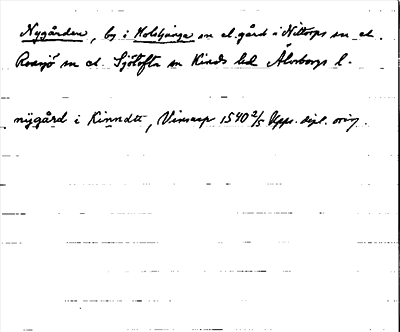 Nygården, by i Holsljunga sn el. gård i Nittorps sn el.
Rossjö sn el. Sjötofta sn Kinds hd Älvsborgs l.
nÿgård i Kinndtt, Vinsarp 1540 2/5 Upps. dipl. orig.